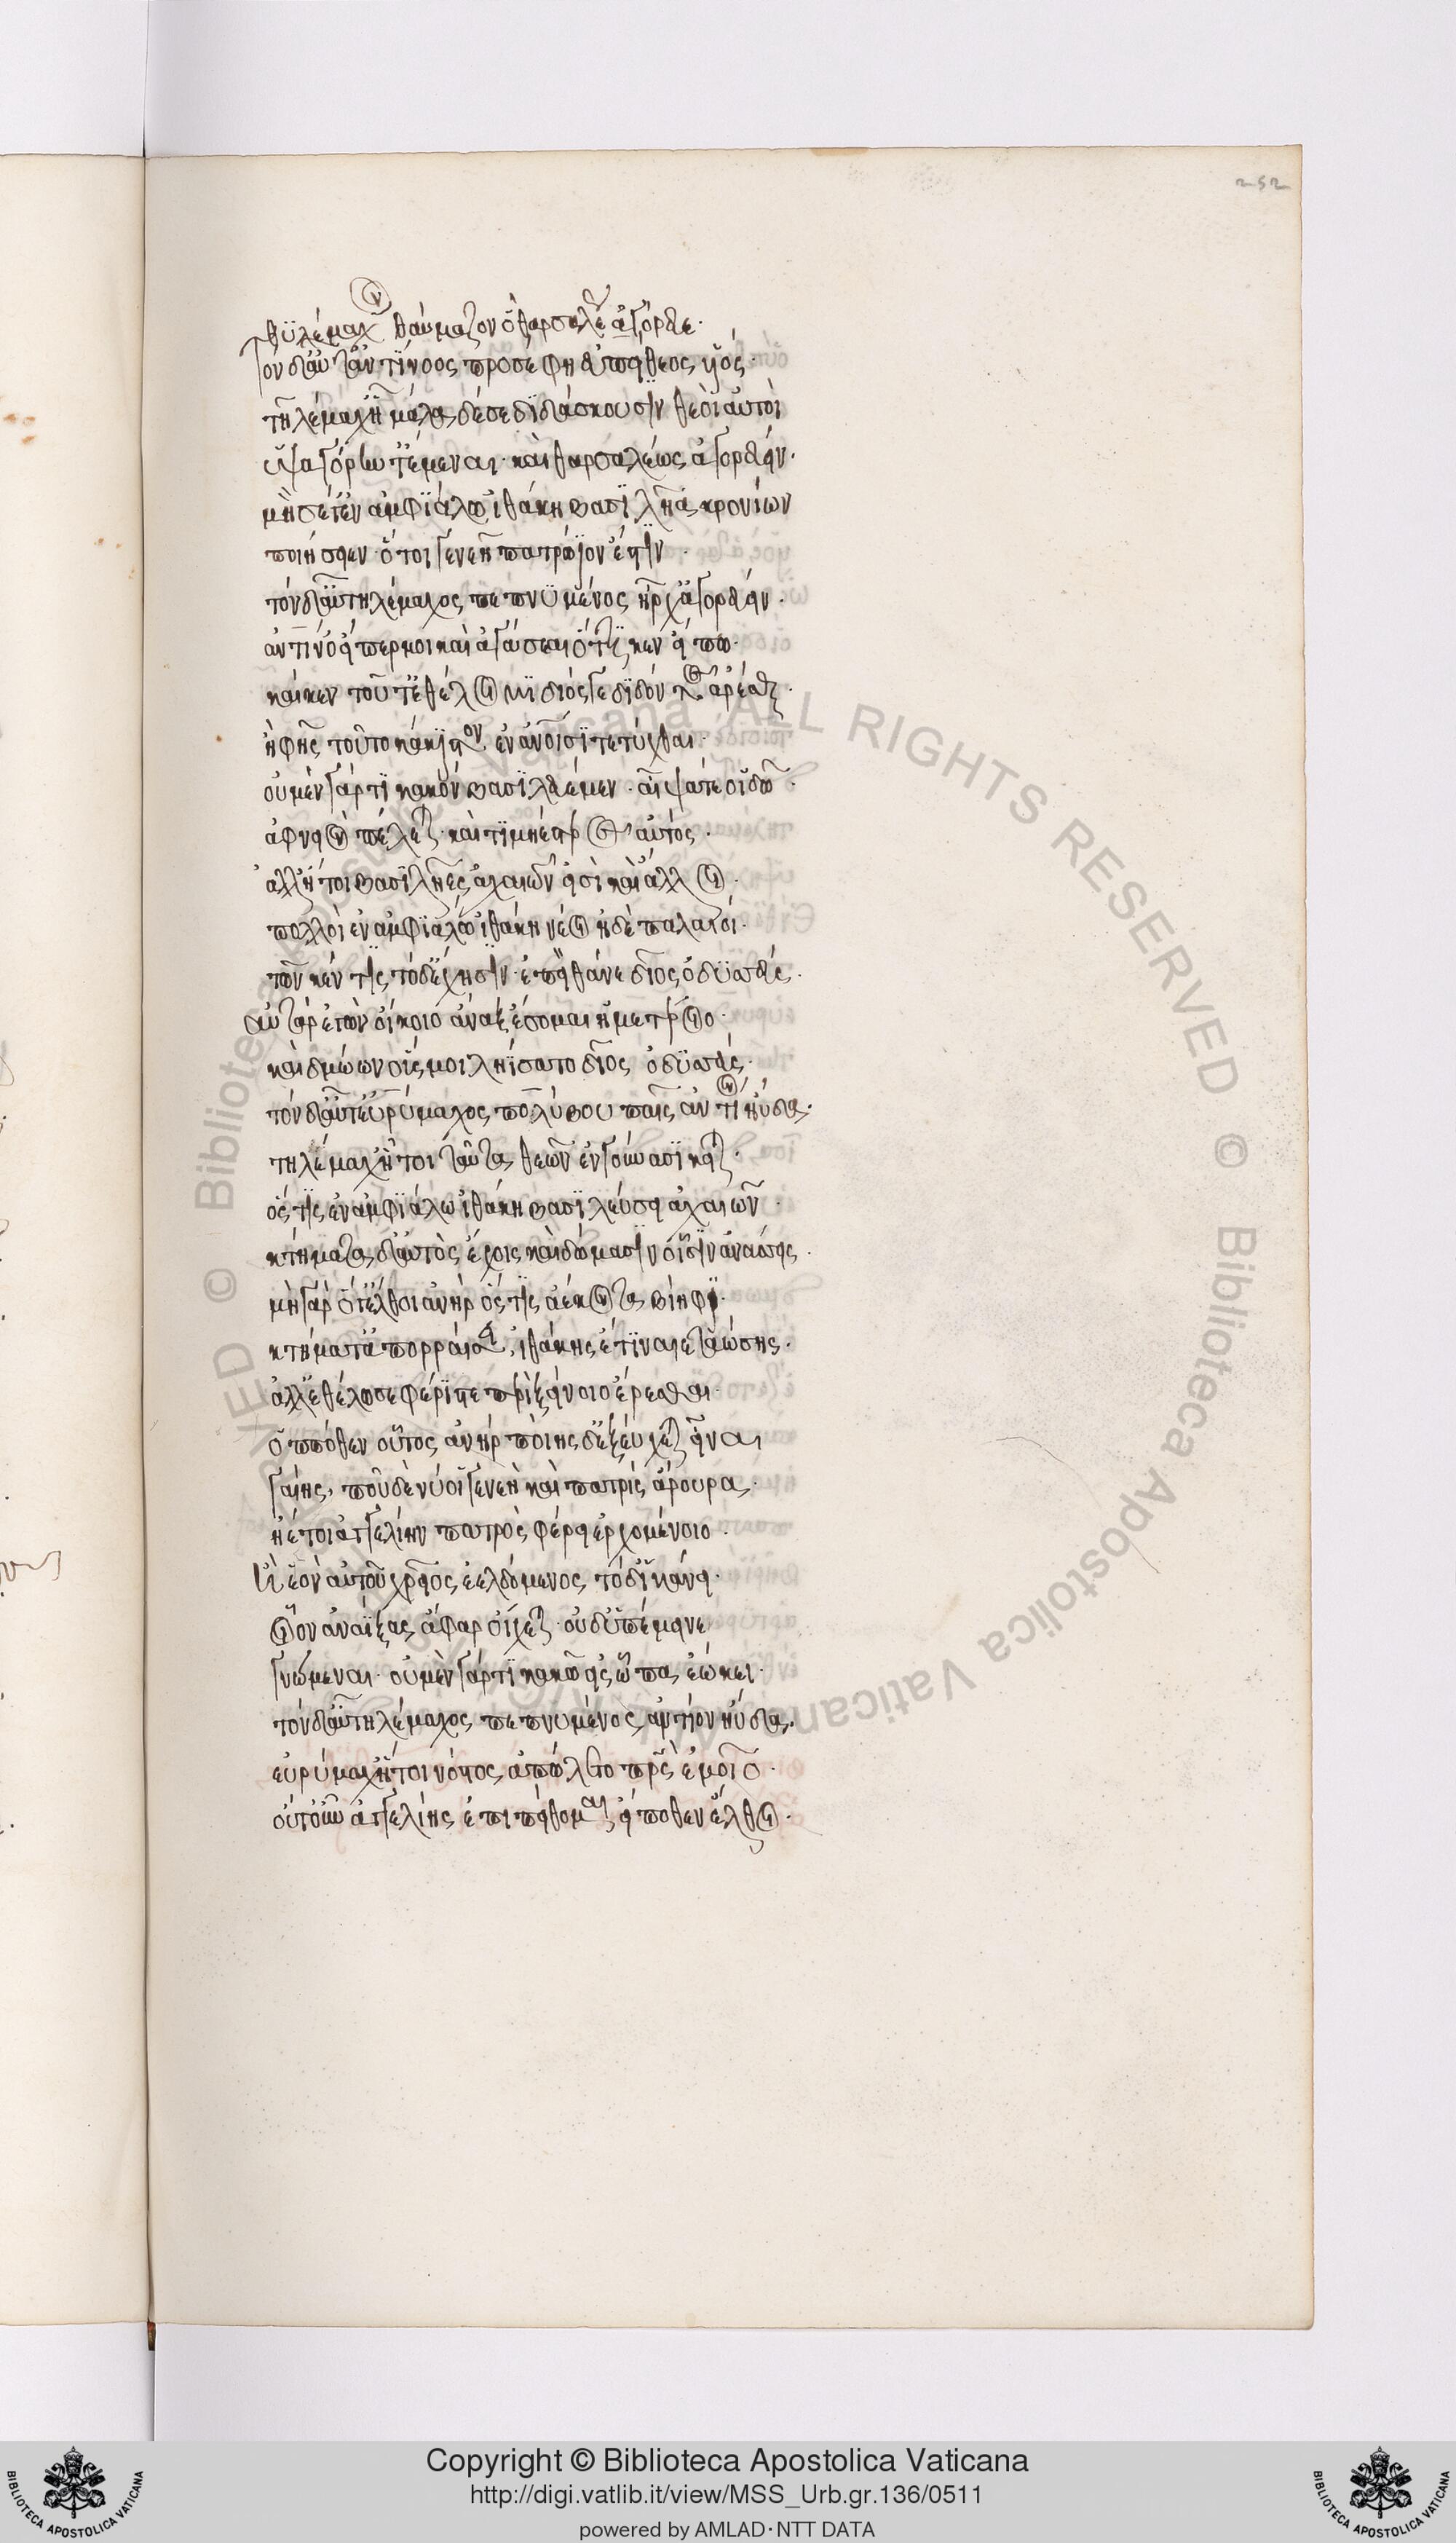 252
τηλέμαχον θαύμαζον ὃ θαρσαλέως ἀγόρευε·
τὸν δ' αὖτ' ἀντίνοος προσέφη εὐπείθεος υἱός·
τηλέμαχ' ἦ μάλα δέ σε διδάσκουσιν θεοὶ αὐτοὶ
ὑψαγόρην τ' ἔμεναι· καὶ θαρσαλέως ἀγορεύειν·
μὴ σέ γ' ἐν ἀμφιάλω ἰθάκη βασιλῆα κρονίων
ποιήσειεν· ὅ τοι γενεῆ πατρώϊόν ἐστιν·
τὸν δ' αὖ τηλέμαχος πεπνυμένος ἤρχ' ἀγορεύειν·
ἀντίνο' εἴπερ μοι καὶ ἀγάσσεαι ὅττι κεν εἴπω·
καί κεν τοῦτ' ἐθέλοιμι διός γε διδόντος ἀρέσθαι·
ἦ φῆς τοῦτο κάκιστον ἐν ἀνοῖσι τετύχθαι·
οὐ μὲν γάρ τι κακὸν βασιλευέμεν· αἶψά τε οἱ δῶ·
ἀφνειὸν πέλεται· καὶ τιμηέστερος αὐτός·
ἀλλ' ἤτοι βασιλῆες ἀχαιῶν εἰσὶ καὶ ἄλλοι·
πολλοὶ ἐν ἀμφιάλω ἰθάκη νέοι ἠδὲ παλαιοί·
τῶν κέν τις τόδ' ἔχησιν· ἐπεὶ θάνε δῖος ὀδυσσεύς·
αὐτὰρ ἐγὼν οἴκοιο ἄναξ ἔσομαι ἡμετέροιο·
καὶ δμώων οὕς μοι ληΐσατο δῖος ὀδυσσεύς·
τὸν δ' αὖτ' εὐρύμαχος πολύβου παῖς ἀντίον ηὔδα·
τηλέμαχ' ἤτοι ταῦτα θεῶν ἐν γούνασι κεῖται·
ὅς τις ἐν ἀμφιάλω ἰθάκη βασιλεύσει ἀχαιῶν·
κτήματα δ' αὐτὸς ἔχοις καὶ δώμασιν οἷσιν ἀνάσσεις·
μὴ γὰρ ὅ γ' ἔλθοι ἀνὴρ ὅς τις ἀέκοντα βίηφι·
κτήματ' ἀπορραίσει, ἰθάκης ἔτι ναιεταώσης·
ἀλλ' ἐθέλω σε φέριστε περὶ ξείνοιο ἐρέσθαι·
ὁππόθεν οὗτος ἀνήρ ποίης δ' ἐξεύχεται εἶναι
γαίης· ποῦ δὲ νύ οἱ γενεὴ καὶ πατρὶς ἄρουρα·
ἠέ τοι ἀγγελίην πατρὸς φέρει ἐρχομένοιο·
ἢ ἑὸν αὐτοῦ χρεῖος ἐελδόμενος τόδ' ἱκάνει·
οἷον ἀναΐξας ἄφαρ οἴχεται· οὐδ' ὑπέμεινε
γνώμεναι· οὐ μὲν γάρ τι κακῶ εἰς ὦπα ἐώκει·
τὸν δ' αὖ τηλέμαχος πεπνυμένος ἀντίον ηὔδα·
εὐρύμαχ' ἤτοι νόστος ἀπώλετο πατρὸς ἐμοῖο·
οὔτ' οὖν ἀγγελίης ἔτι πείθομαι εἴ ποθεν ἔλθοι·
Copyright © Biblioteca Apostolica Vaticana
http://digi.vatlib.it/view/MSS_Urb.gr.136/0511
powered by AMLAD·NTT DATA